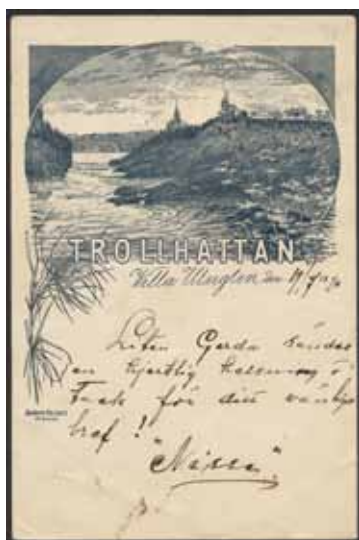 TROLLHÄTTAN
Villa Utsigten den 19/7 1890
Liten Gerda sändes
en hjertlig helsning o
Tack för ditt vänliga
bref!
"Nisse"